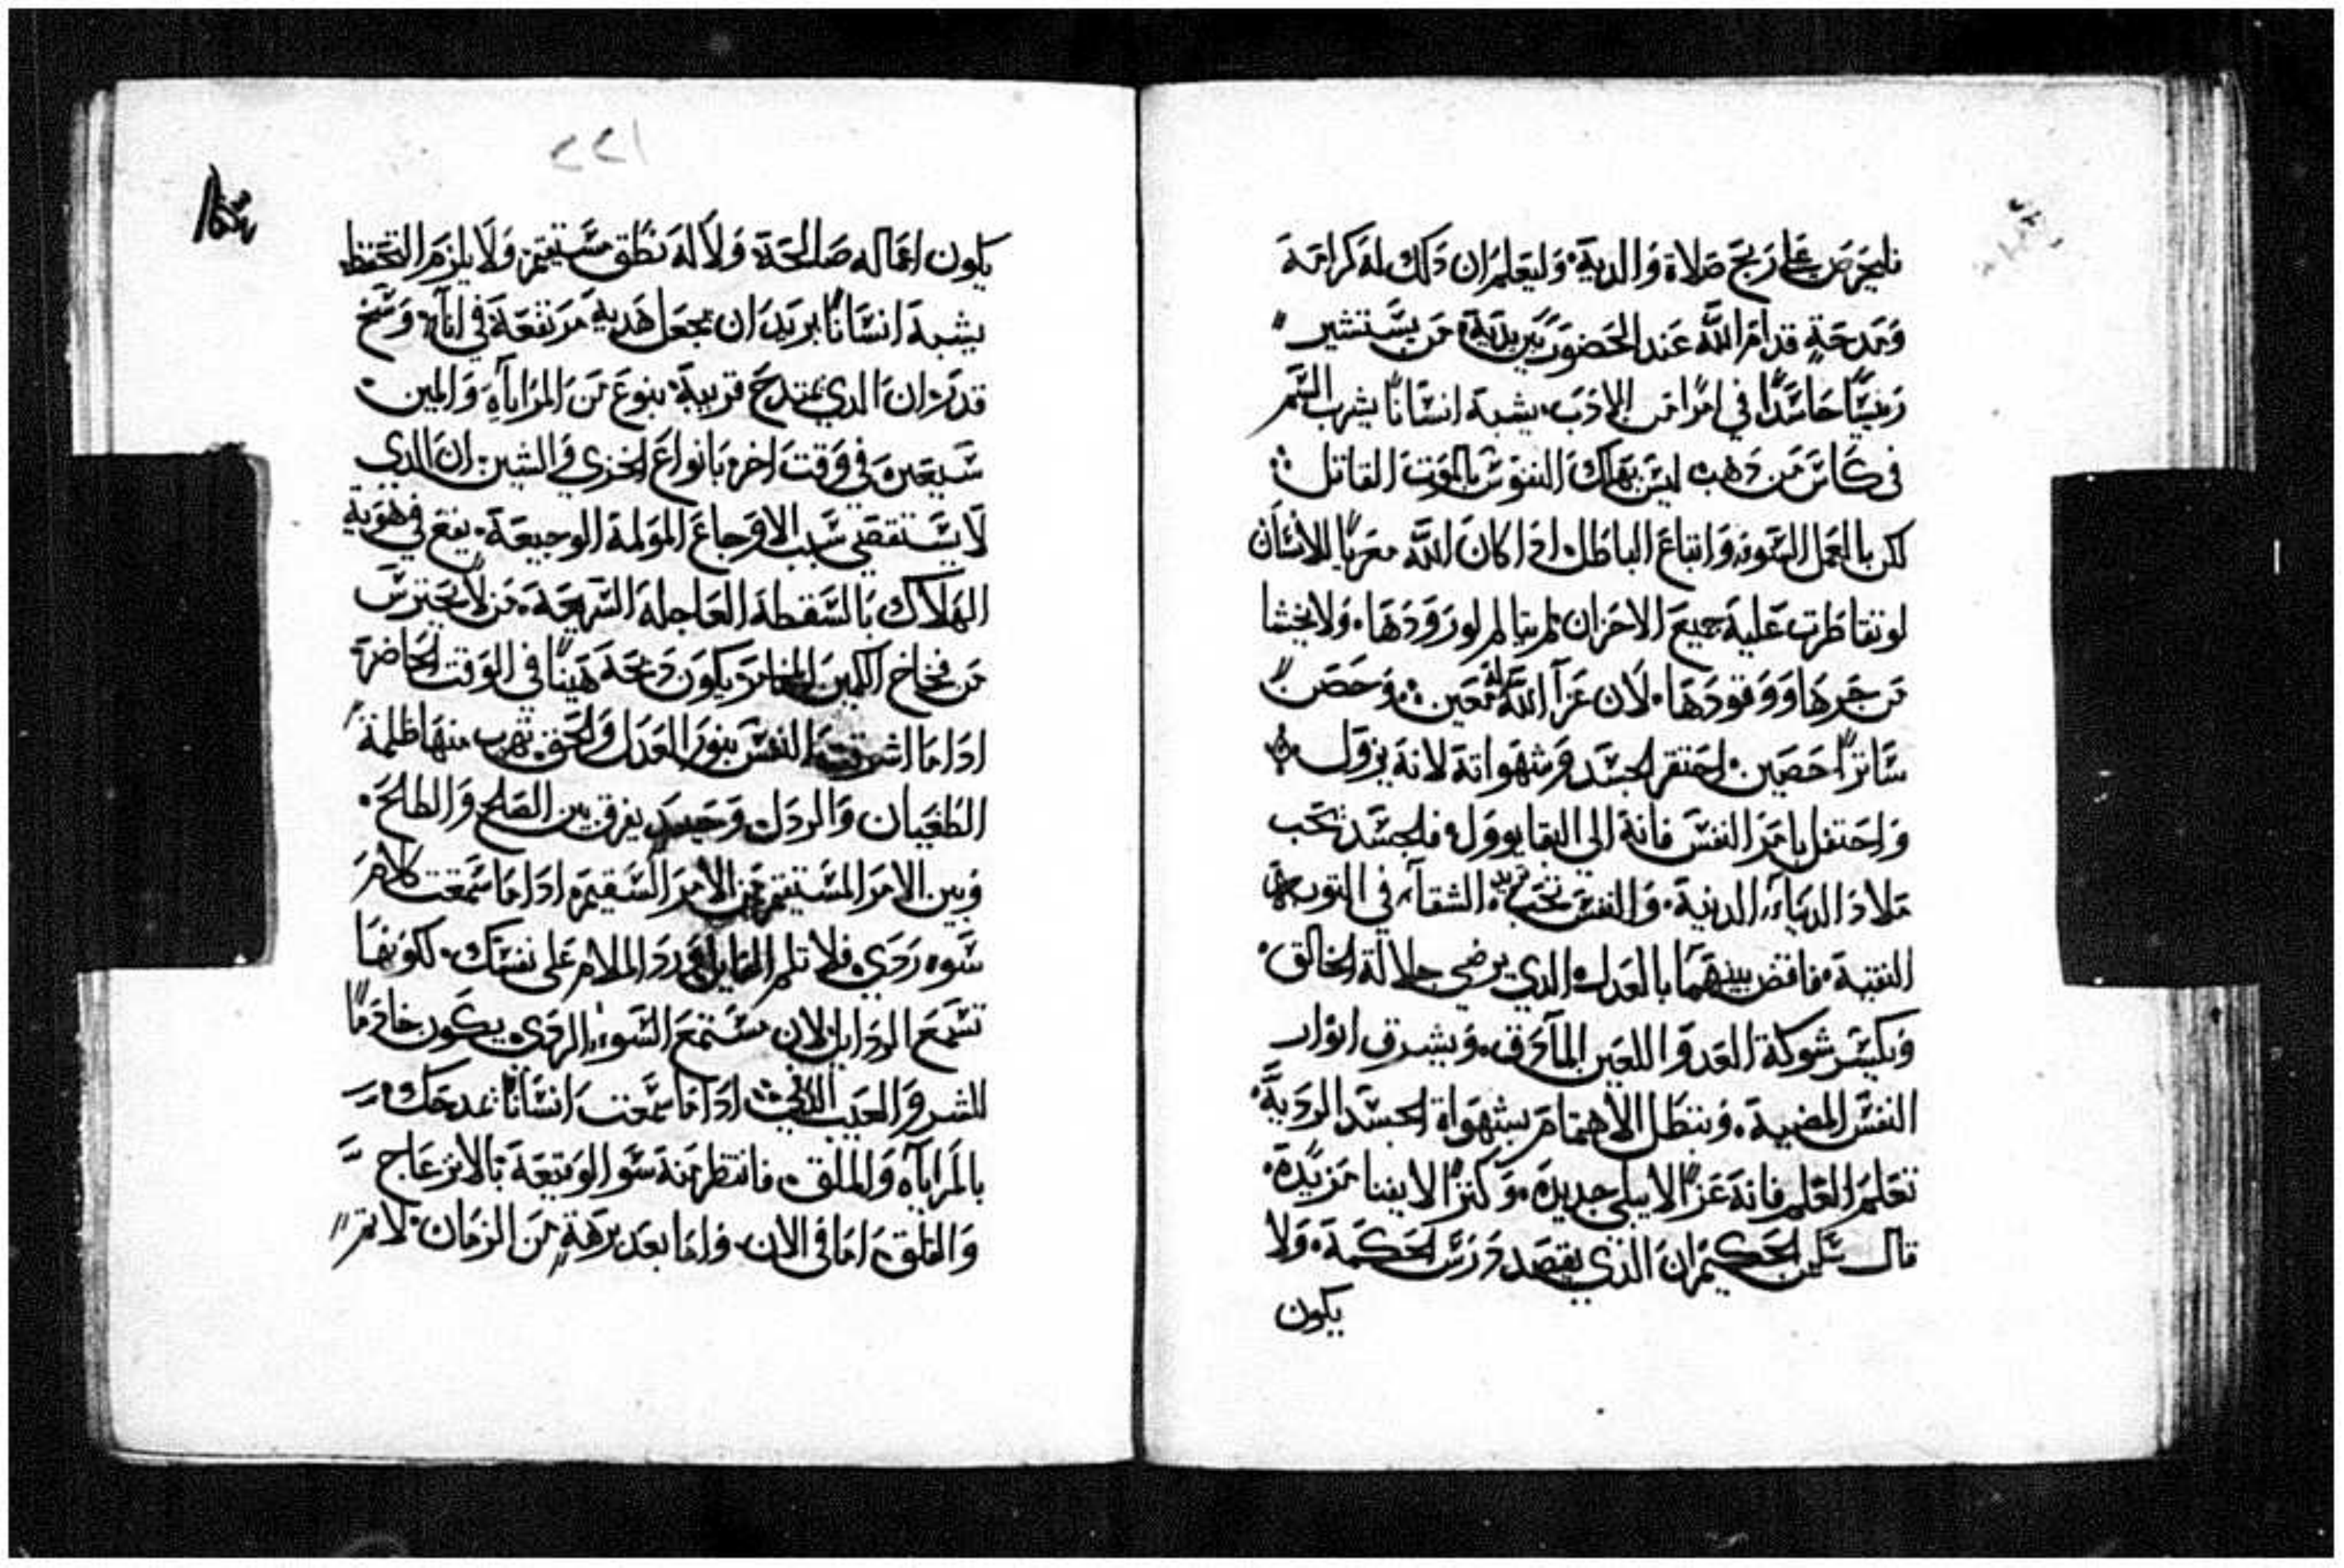 فليحرص على ربح صلاة والديه وليعلم ان دلك له كرامة
ومدحة قدام الله عند الحضور بين يديه من يستشير
رئيسًا حاسدًا في امرًا من الادب يشبه انسانًا يشرب السم
في كاس من دهب ليس يهلك النفوس بالموت القاتل
لكن بالعمل السو واتباع الباطل ادا كان الله معزيًا للانسان
لو تقاطرت عليه جميع الاحزان لم يتالم لورودها ولا يخشا
من حرها ووقودها لان عزآ الله له معين وحصن
ساترًا حصين احتقر الجسد وشهواته لانه يزول
واحتفل بامر النفس فانه الى البقا يوول فالجسد تحب
ملاد الدنياء الدنية والنفس تحب الشقآء في التوبة
النقية فاقض بينهما بالعدل الدي يرضي جلالة الخالق
وبكسر شوكة العدو اللعين المآرق ويشرق انوار
النفس المضية وبتطل الاهتمام بشهواة الجسد الردية
تعلم العلم فانه عزًا لا يبلى جديده وكنزًا لا يفنا مزيده
قال سليمن الحكيم ان الذي يقصد درس الحكمة ولا
يكون
٢٢١
يكون اعماله صالحة ولا له نطق مستقيم ولا يلزم التحفظ
يشبه انسانًا يريد ان يجعل هدية مرتفعة في انآء وسخ
قدر ان الدي يمتدح قريبه بنوع من المرايآه والمين
سيعيره في وقت اخر بانواع الخزي والشين ان الدي
لا يستقصي سبب الاوجاع المولمة الوجيعة يقع في هوية
الهلاك بالسقطة العاجلة السريعة من لا يحترس
من فخاخ الكمين المخامر يكون دبحه هينًا في الوقت الحاضر
ادا ما اشرقت النفس بنور العدل والحق تهرب منها ظلمة
الطغيان والردل وحينيد يفرق بين الصلح والطلح
وبين الامر المستقيم من الامر السقيم ادا ما سمعت كلام
سوء ردي فلا تلم القايل ورد الملام على نفسك لكونها
تسمع الردايل لان مستمع السوء الردي يكون خادمًا
للشر والعيب ادا ما سمعت انسانًا يمدحك
بالمرايآه والملق فانتظر منه سو الوقيعة بالانزعاج
والقلق اما في الان واما بعد برهة من الزمان لا تمر